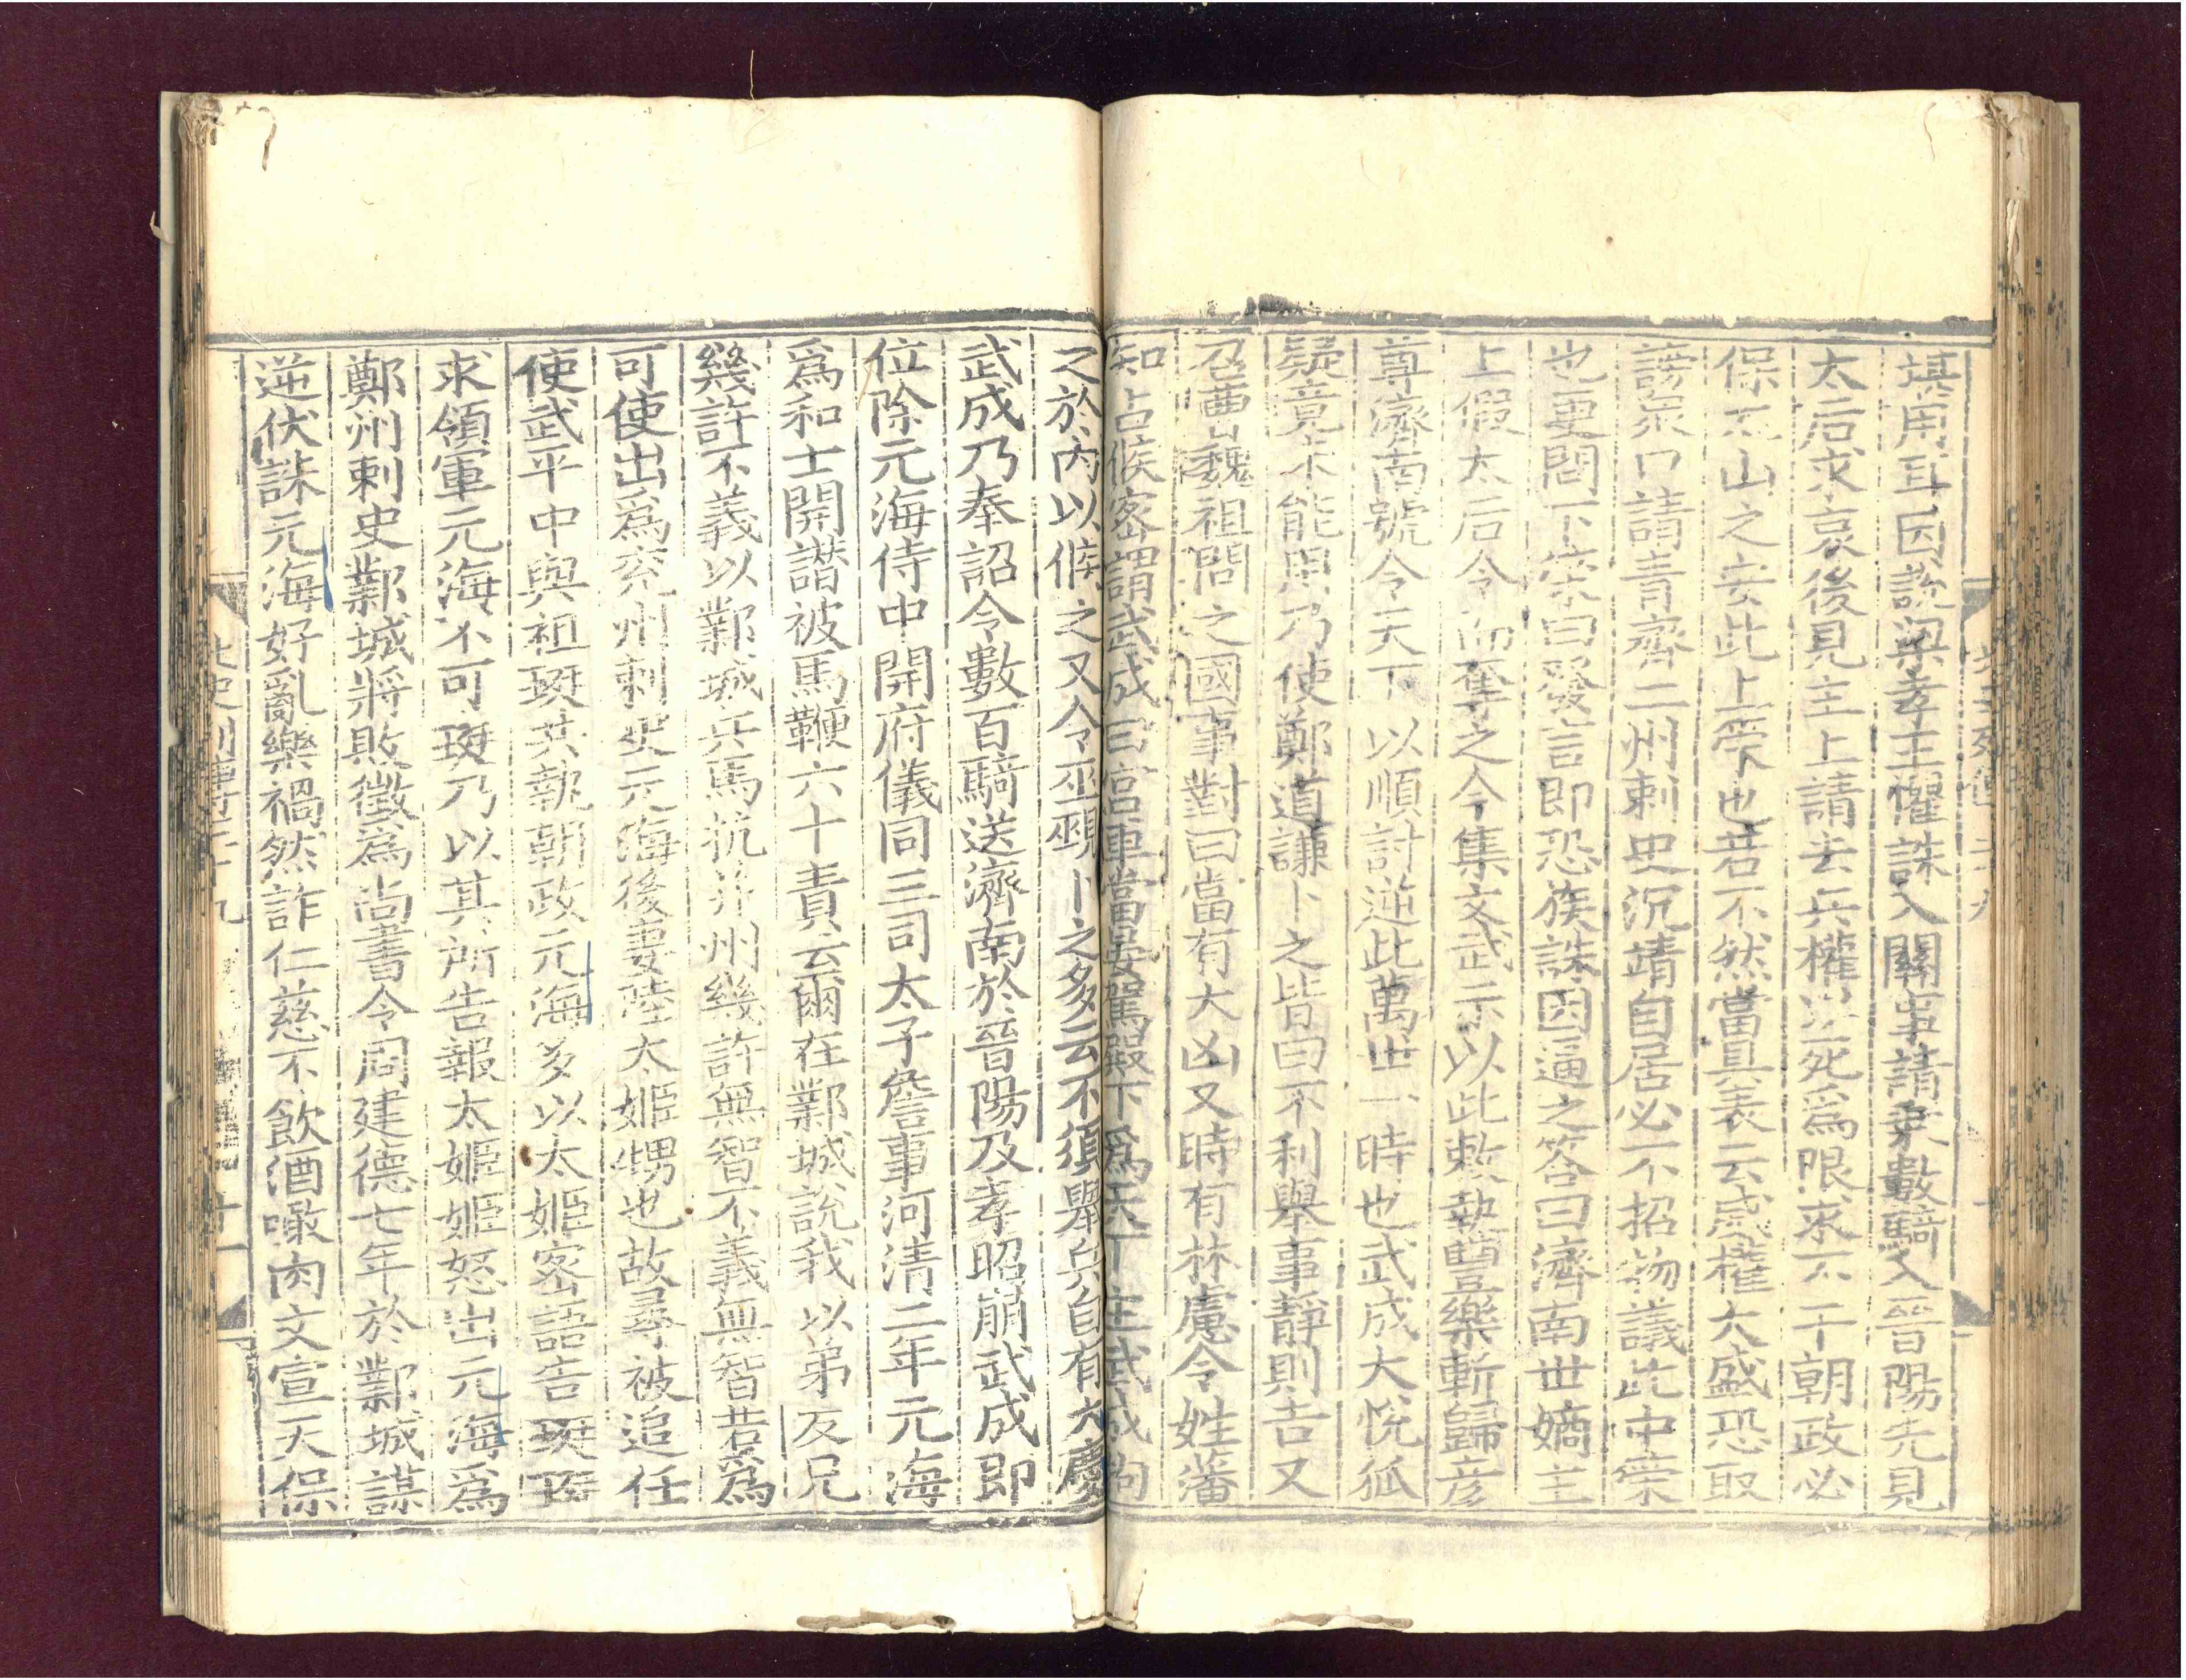 填用耳因說梁孝王懼誅入關事請乗數騎入晉陽先見
太后求哀後見主上請去兵權以死爲限求不干朝政必
保太山之安此上策也若不然當具表云威權大盛恐取
謗衆口請青齊二州刺史沉靖自居必不招物議此中策
也更問下策曰發言即恐族誅因逼之答曰濟南世嫡主
上假太后令而奪之今集文武示以此敕執豐樂斬歸彦
尊濟南號令天下以順討逆此萬世一時也武成大悅狐
疑竟不能用乃使鄭道謙卜之皆曰不利舉事靜則吉又
召曹魏祖問之國事對曰當有大凶又時有林慮令姓藩
知占候密謂武成曰宮車當晏駕殿下爲天下主武成拘
之於內以候之又令巫覡卜之多云不須舉兵自有大慶
武成乃奉詔令數百騎送濟南於晉陽及孝昭崩武成即
位除元海侍中開府儀同三司太子詹事河清二年元海
爲和士開譖被馬鞭六十責云爾在鄴城說我以弟反兄
幾許不義以鄴城兵馬抗并州幾許無智不義無智若爲
可使出爲兖州刺史元海後妻陸太姬甥也故尋被追任
使武平中與祖珽共執朝政元海多以太姬密語告珽珽
求領軍元海不可珽乃以其所告報太姬姬怒出元海爲
鄭州刺史鄴城將敗徵爲尚書令周建德七年於鄴城謀
逆伏誅元海好亂樂禍然詐仁慈不飲酒噉肉文宣天保
北史列傳三十九　十一